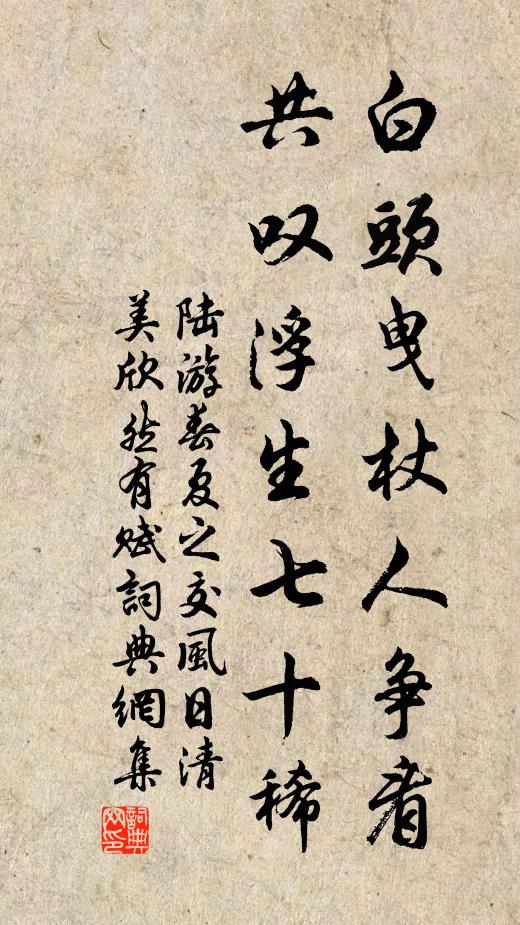 白頭曳杖人争看
共叹浮生七十稀
陆游春夏之交風日清
美欣然有赋詞典網集
詞典
网印